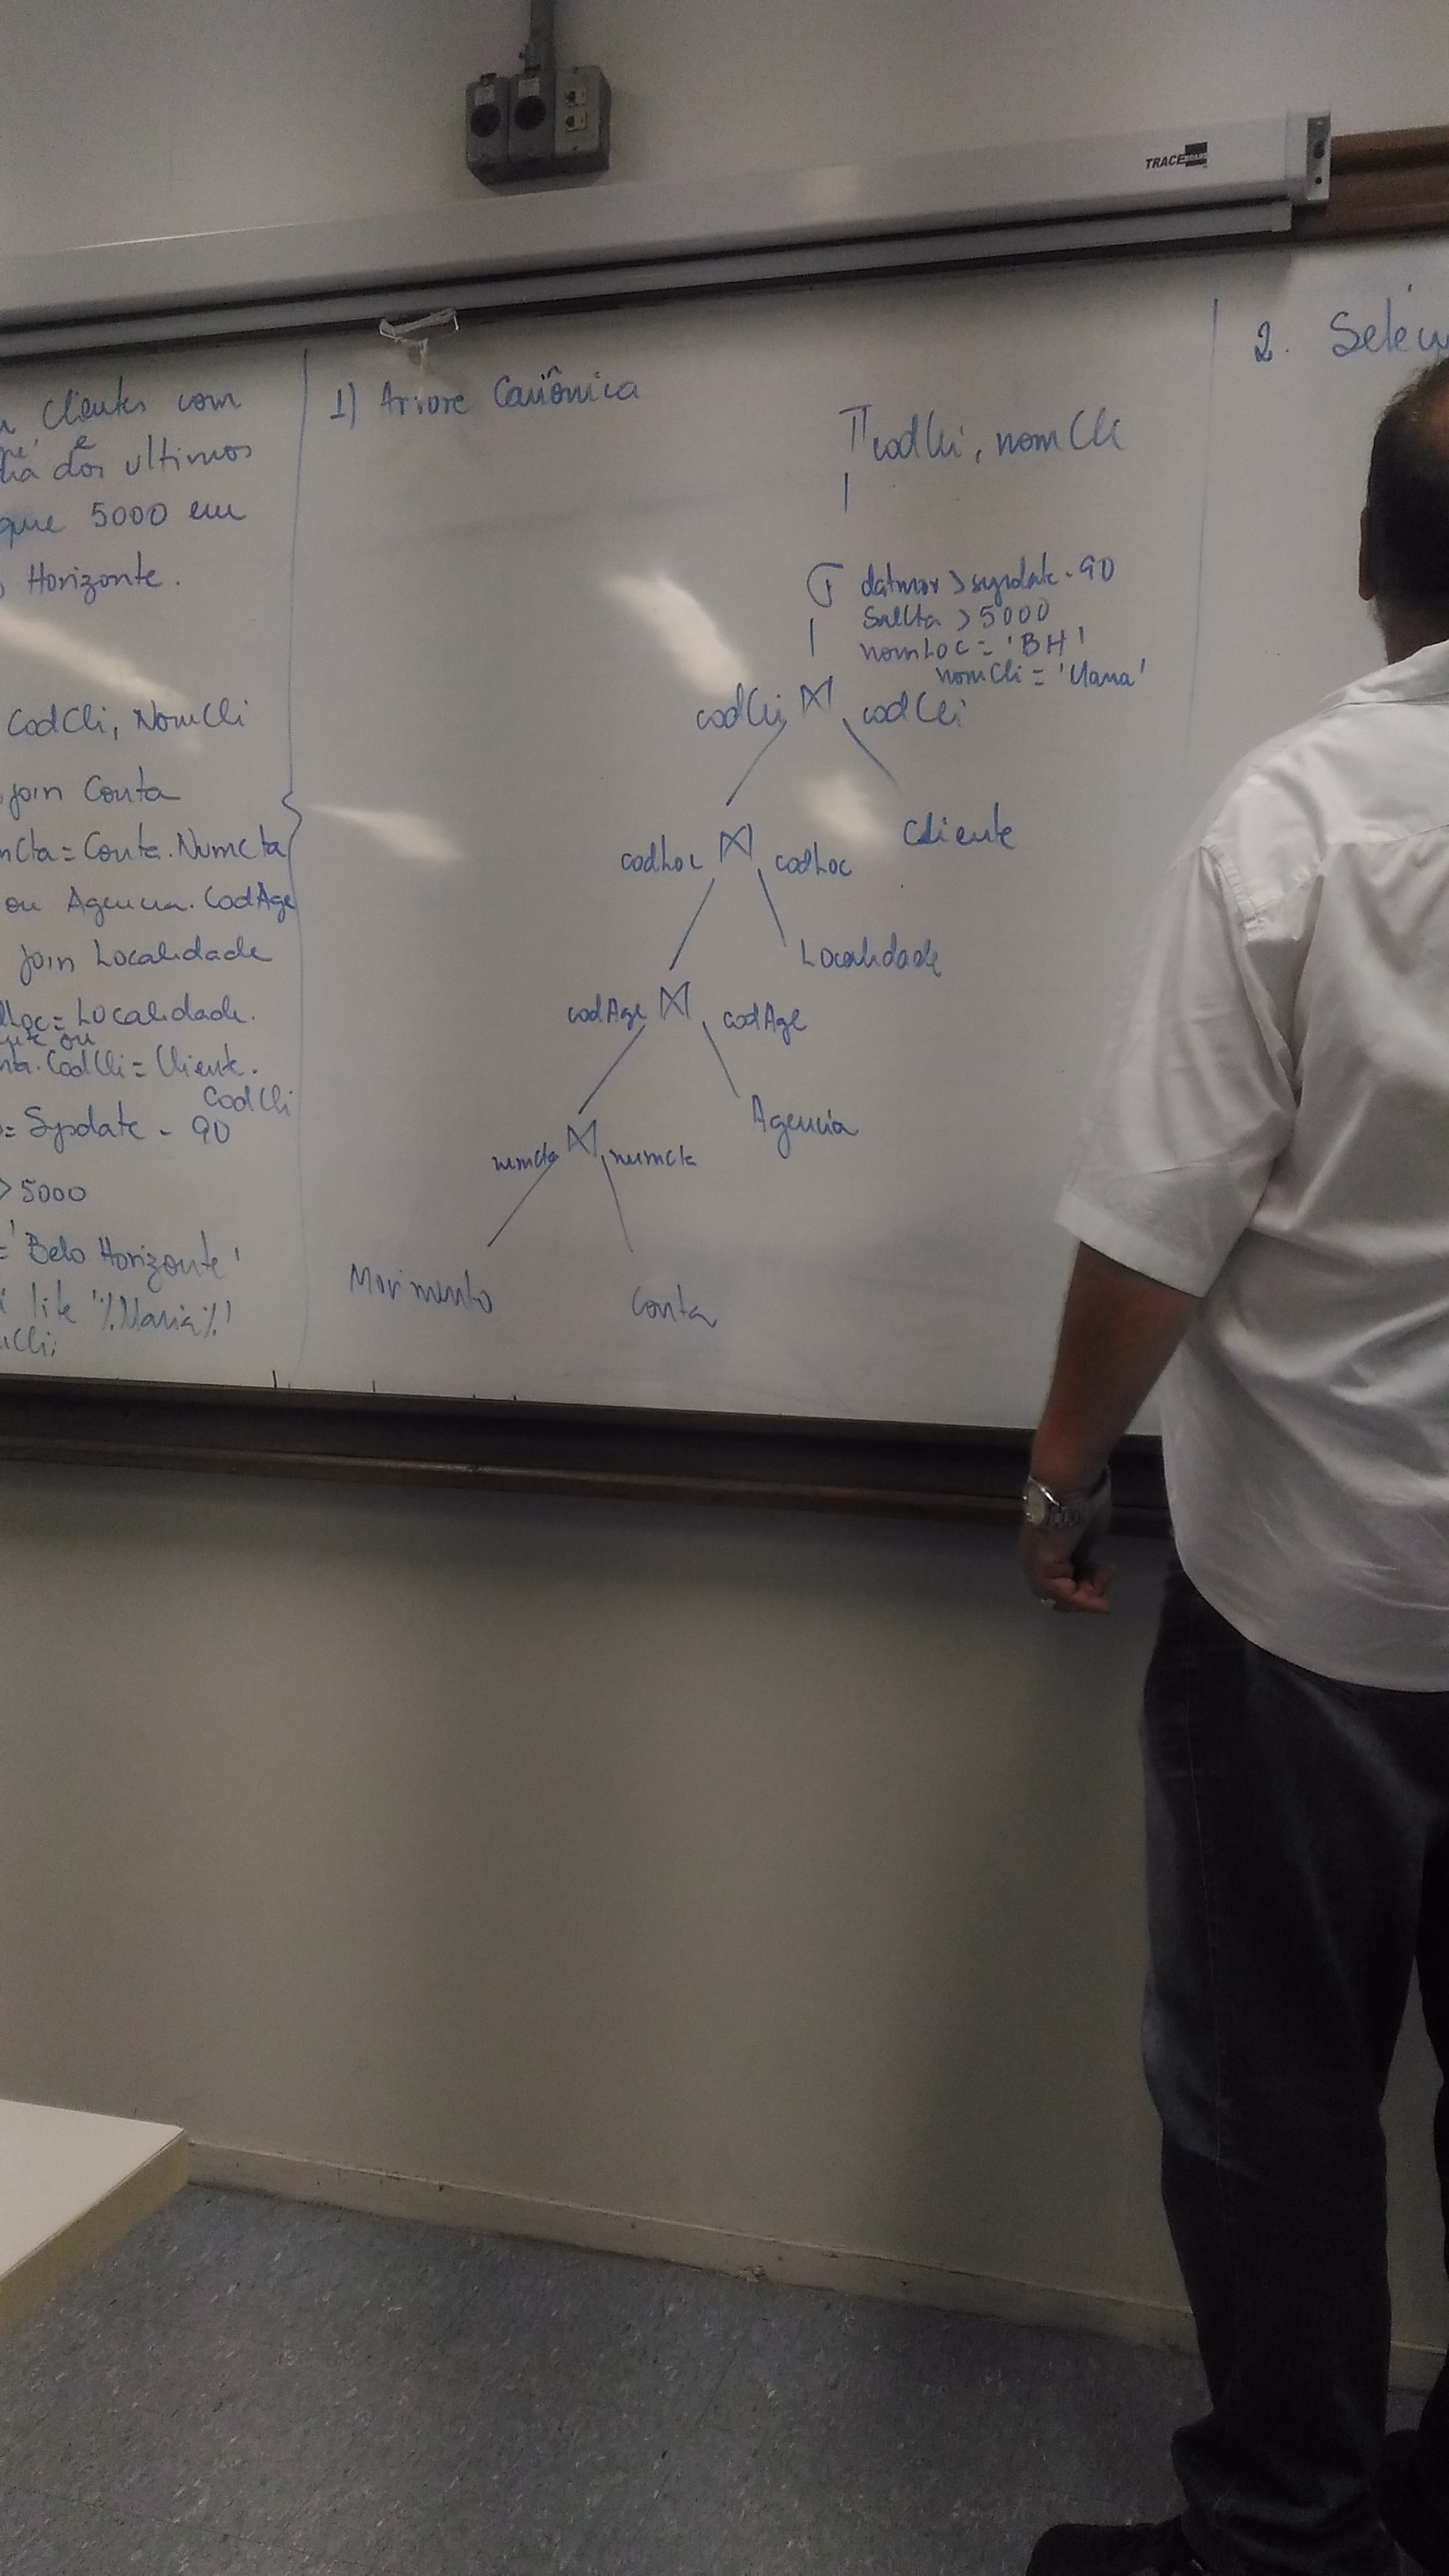 TRACEBOARD
Clientes com
dos ultimos
que 5000 em
Horizonte.
CodCli, NomCli
join Conta
Cta = Conta.NumCta
ou Agencia.CodAge
join Localidade
Loc = Localidade.
ou
.CodCli = Cliente.
CodCli
= Sysdate - 90
> 5000
= 'Belo Horizonte'
like '%Maria%'
Cli;
1) Arvore Canônica
π codCli, nomCli
σ datmov > sysdate - 90
SalCta > 5000
nomLoc = 'BH'
nomCli = 'Maria'
codCli ⋈ codCli
Cliente
codLoc ⋈ codLoc
Localidade
codAge ⋈ codAge
Agencia
numCta ⋈ numCta
Movimento Conta
2.